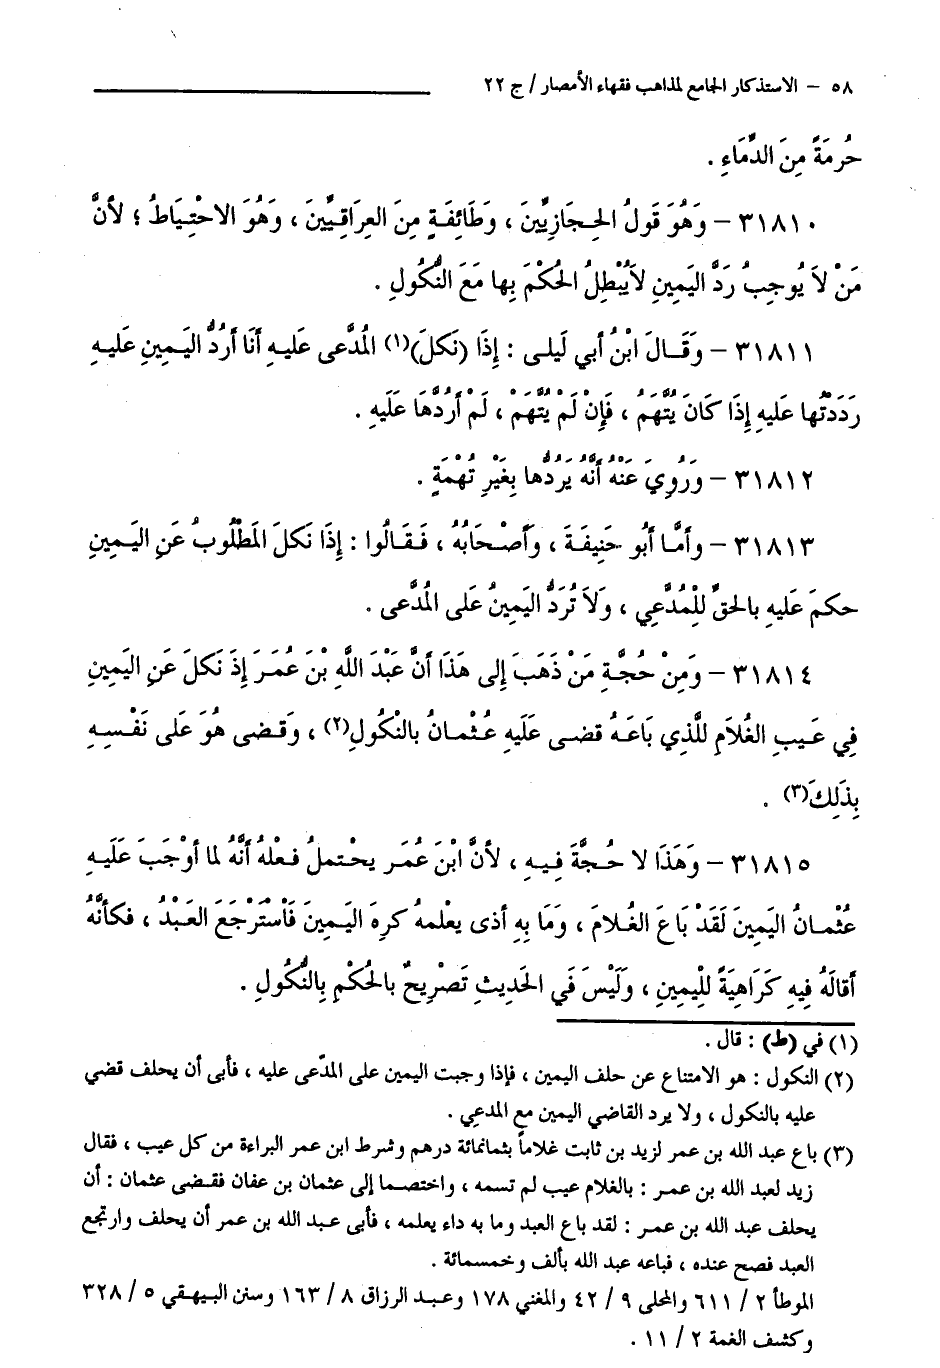 ٥٨ – الاستذكار الجامع لمذاهب فقهاء الأمصار / ج ٢٢
حُرمَةً مِنَ الدِّمَاءِ .
٣١٨١٠ – وَهُوَ قَولُ الحِجَازِيِّينَ ، وَطَائِفَةٍ مِنَ العِرَاقِيِّينَ ، وَهُوَ الاحْتِيَاطُ ؛ لأنَّ
مَنْ لاَ يُوجِبُ رَدَّ اليَمِينِ لاَيُبْطِلُ الحُكْمَ بِها مَعَ النُّكُولِ .
٣١٨١١ – وَقَالَ ابْنُ أبي لَيلى : إذَا (نَكلَ)(١) المُدَّعى عَليهِ أنَا أرُدُّ اليَمِينَ عَليهِ
رَدَدَتُها عَليهِ إذَا كَانَ يُتَّهَمُ ، فَإنْ لَمْ يُتَّهَمْ ، لَمْ أرُدَّهَا عَلَيهِ .
٣١٨١٢ – وَرُوِيَ عَنْهُ أنَّهُ يَرُدُّها بِغَيْرِ تُهْمَةٍ .
٣١٨١٣ – وأمَّا أبُو حَنِيفَةَ ، وَأصْحَابُهُ ، فَقَالُوا : إذَا نَكلَ المَطْلُوبُ عَنِ اليَمِينِ
حكمَ عَليهِ بالحَقِّ لِلْمُدَّعِي ، وَلاَ تُرَدُّ اليَمِينُ عَلى المُدَّعى .
٣١٨١٤ – وَمِنْ حُجَّةِ مَنْ ذَهَبَ إلى هَذَا أنَّ عَبْدَ اللَّهِ بْنَ عُمَرَ إذَ نَكلَ عَنِ اليَمِينِ
فِي عَيبِ الغُلاَمِ للَّذِي بَاعَهُ قضى عَلَيهِ عُثْمانُ بالنْكُولِ(٢) ، وَقضى هُوَ عَلى نَفْسِهِ
بِذَلِكَ(٣) .
٣١٨١٥ – وَهَذَا لا حُجَّةَ فِيهِ ، لأنَّ ابْنَ عُمَر يحْتملُ فعْلهُ أنَّهُ لما أوْجَبَ عَلَيهِ
عُثْمانُ اليَمِينَ لَقَدْ بَاعَ الغُلامَ ، وَمَا بِهِ أذى يعْلمهُ كرِهَ اليَمِينَ فَاسْتَرْجَعَ العَبْدُ ، فكأنَّهُ
أقالَهُ فِيهِ كَرَاهِيَةً لِليمِينِ ، وَلَيْسَ فَي الحَدِيثِ تَصْرِيحٌ بالحُكْمِ بِالنُّكُولِ .
(١) في (ط) : قال .
(٢) النكول : هو الامتناع عن حلف اليمين ، فإذا وجبت اليمين على المدّعى عليه ، فأبى أن يحلف قضي
عليه بالنكول ، ولا يرد القاضي اليمين مع المدعي .
(٣) باع عبد الله بن عمر لزيد بن ثابت غلاماً بثمانمائة درهم وشرط ابن عمر البراءة من كل عيب ، فقال
زيد لعبد الله بن عمر : بالغلام عيب لم تسمه ، واختصما إلى عثمان بن عفان فقضى عثمان : أن
يحلف عبد الله بن عمر : لقد باع العبد وما به داء يعلمه ، فأبى عبد الله بن عمر أن يحلف وارتجع
العبد فصح عنده ، فباعه عبد الله بألف وخمسمائة .
الموطأ ٢ / ٦١١ والمحلى ٩ / ٤٢ والمغني ١٧٨ وعبد الرزاق ٨ / ١٦٣ وسنن البيهقي ٥ / ٣٢٨
وكشف الغمة ٢ / ١١ .